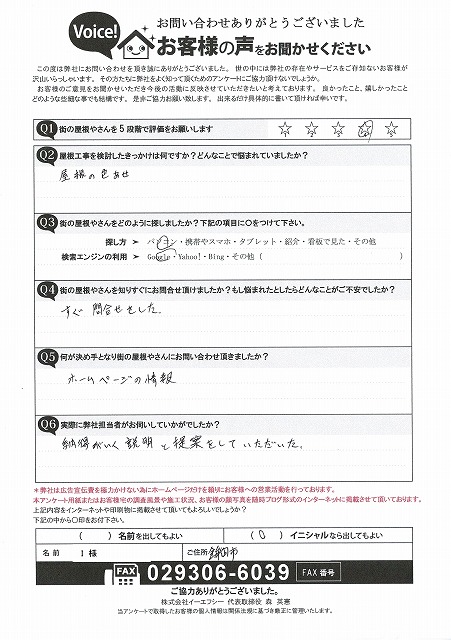 Voice!
お問い合わせありがとうございました
お客様の声をお聞かせください
この度は弊社にお問い合わせを頂き誠にありがとうございました。 世の中には弊社の存在やサービスをご存知ないお客様が
沢山いらっしゃいます。 その方たちに弊社をよく知って頂くためのアンケートにご協力頂けないでしょうか。
お客様のご意見をお聞かせいただき今後の活動に反映させていただきたいと考えております。 良かったこと、嬉しかったこと
どのような些細な事でも結構です。 是非ご協力お願い致します。 出来るだけ具体的に書いて頂ければ幸いです。
Q1 街の屋根やさんを5段階で評価をお願いします
1 2 3 4 5
Q2 屋根工事を検討したきっかけは何ですか？どんなことで悩まれていましたか？
屋根の色あせ
Q3 街の屋根やさんをどのように探しましたか？下記の項目に〇をつけて下さい。
探し方 ＞ パソコン・携帯やスマホ・タブレット・紹介・看板で見た・その他
検索エンジンの利用 ＞ Google・Yahoo!・Bing・その他（ ）
Q4 街の屋根やさんを知りすぐにお問合せ頂けましたか？もし悩まれたとしたらどんなことがご不安でしたか？
すぐ問合せをした。
Q5 何が決め手となり街の屋根やさんにお問い合わせ頂きましたか？
ホームページの情報
Q6 実際に弊社担当者がお伺いしていかがでしたか？
納得がいく説明と提案をしていただいた。
＊弊社は広告宣伝費を極力かけない為にホームページだけを頼りにお客様への営業活動を行っております。
本アンケート用紙またはお客様宅の調査風景や施工状況、お客様の顔写真を随時ブログ形式のインターネットに掲載させて頂いております。
上記内容をインターネットや印刷物に掲載させて頂いてもよろしいでしょうか？
下記の中から〇印をお付下さい。
（ ）名前を出してもよい （〇）イニシャルなら出してもよい
名前 I 様 ご住所 市
FAX 029306-6039 FAX 番号
ご協力ありがとうございました。
株式会社イーエフシー 代表取締役 森 英憲
当アンケートで取得したお客様の個人情報は関係法規に基づき厳正に管理いたします。